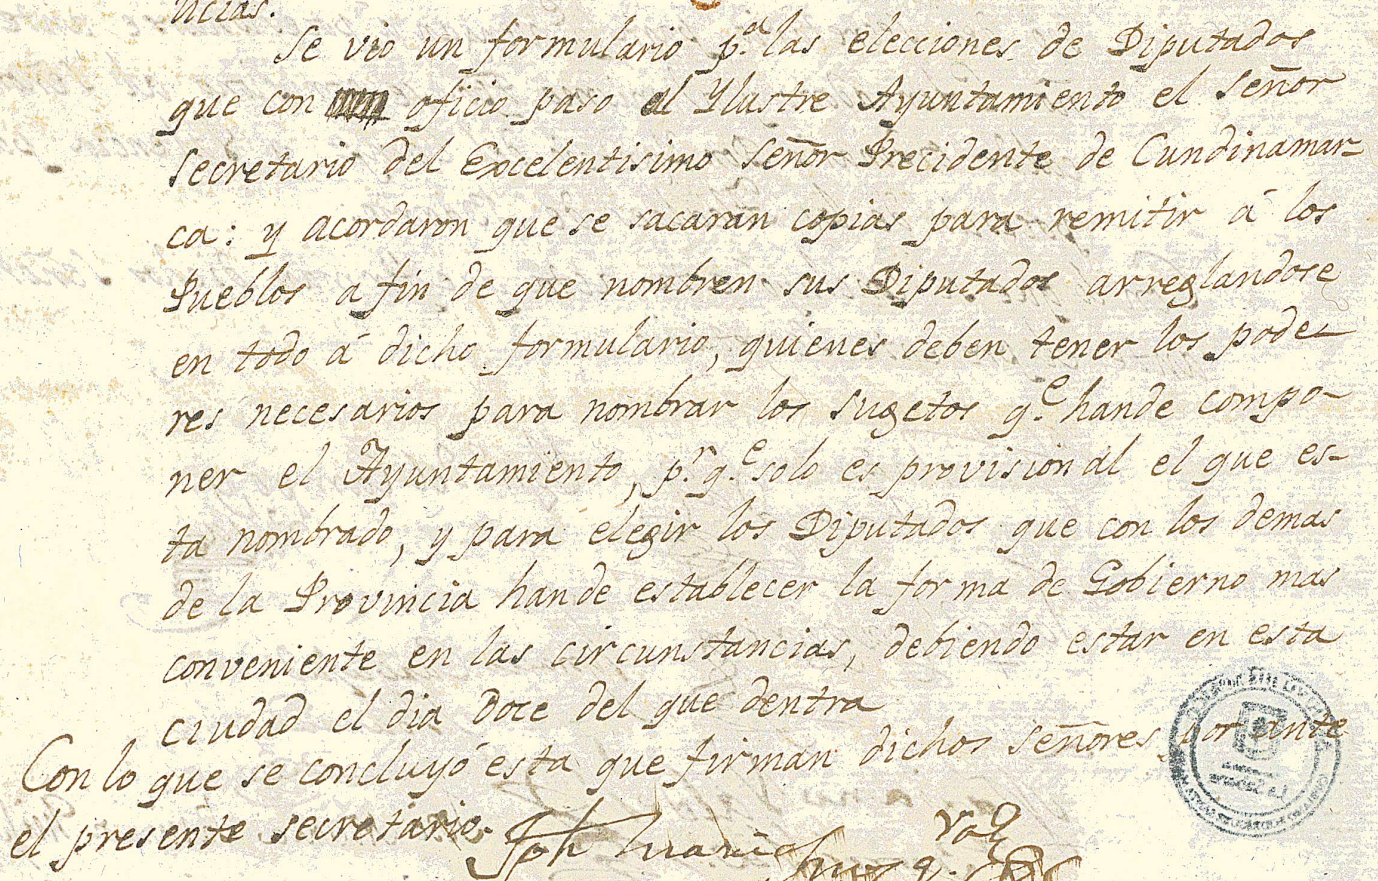 ncias.
Se vio un formulario p.a las elecciones de Diputados
que con oficio paso al Ylustre Ayuntamiento el Señor
Secretario del Excelentisimo Señor Precidente de Cundinamar-
ca: y acordaron que se sacaran copias para remitir á los
Pueblos a fin de que nombren sus Diputados arreglandose
en todo á dicho formulario, quienes deben tener los pode-
res necesarios para nombrar los sugetos q.e hande compo-
ner el Ayuntamiento, p.r q.e solo es provisional el que es-
ta nombrado, y para elegir los Diputados que con los demas
de la Provincia hande establecer la forma de Gobierno mas
conveniente en las circunstancias, debiendo estar en esta
ciudad el dia Doce del que dentra
Con lo que se concluyó esta que firman dichos Señores por ante
el presente secretario